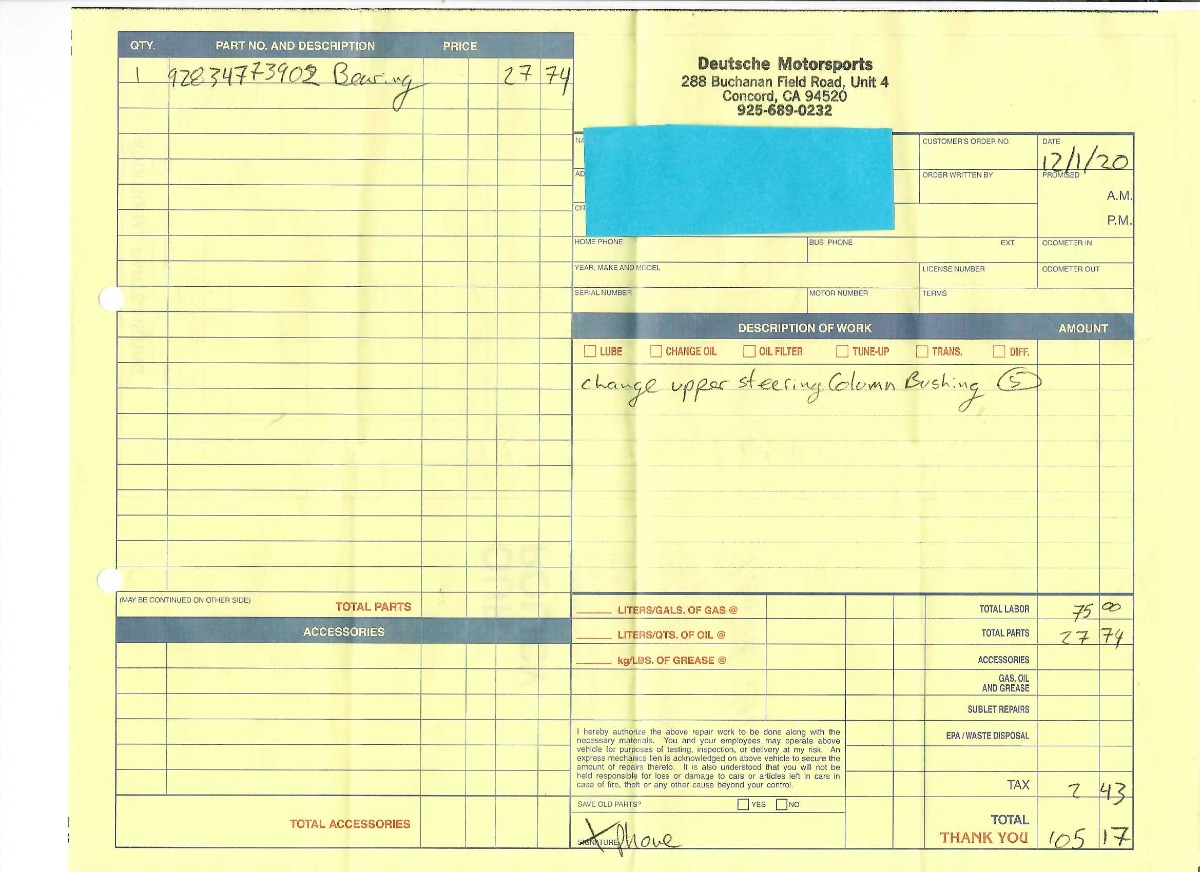 QTY. PART NO. AND DESCRIPTION PRICE
1 92834773902 Bearing 27 74
Deutsche Motorsports
288 Buchanan Field Road, Unit 4
Concord, CA 94520
925-689-0232
CUSTOMER'S ORDER NO. DATE
12/1/20
ORDER WRITTEN BY PROMISED
A.M.
P.M.
HOME PHONE BUS. PHONE EXT. ODOMETER IN
YEAR, MAKE AND MODEL LICENSE NUMBER ODOMETER OUT
SERIAL NUMBER MOTOR NUMBER TERMS
DESCRIPTION OF WORK AMOUNT
LUBE CHANGE OIL OIL FILTER TUNE-UP TRANS. DIFF.
change upper steering Column Bushing
(MAY BE CONTINUED ON OTHER SIDE) TOTAL PARTS
ACCESSORIES
TOTAL ACCESSORIES
LITERS/GALS. OF GAS @
LITERS/QTS. OF OIL @
kg/LBS. OF GREASE @
I hereby authorize the above repair work to be done along with the
necessary materials. You and your employees may operate above
vehicle for purposes of testing, inspection, or delivery at my risk. An
express mechanics lien is acknowledged on above vehicle to secure the
amount of repairs thereto. It is also understood that you will not be
held responsible for loss or damage to cars or articles left in cars in
case of fire, theft or any other cause beyond your control.
SAVE OLD PARTS? YES NO
X Phone
SIGNATURE
TOTAL LABOR 75 00
TOTAL PARTS 27 74
ACCESSORIES
GAS, OIL
AND GREASE
SUBLET REPAIRS
EPA / WASTE DISPOSAL
TAX 2 43
TOTAL
THANK YOU 105 17